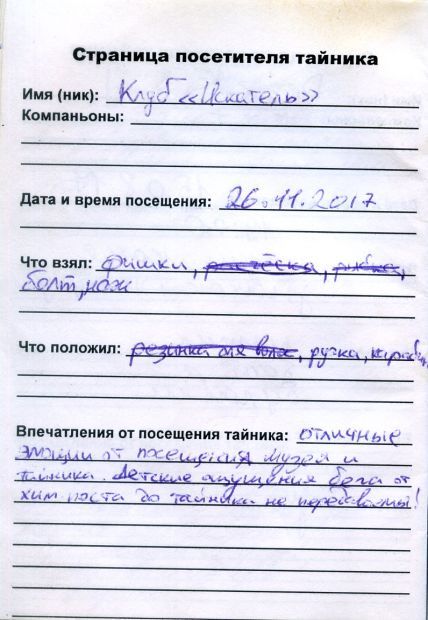 Страница посетителя тайника
Имя (ник): Клуб «Искатель»
Компаньоны:
Дата и время посещения: 26.11.2017
Что взял: фишки, расчёска,
болт, нож
Что положил: резинка для волос, ручка,
Впечатления от посещения тайника: отличные
эмоции от посещения музея и
тайника. Детские ощущения бега от
хим поста до тайника не передаваемы!